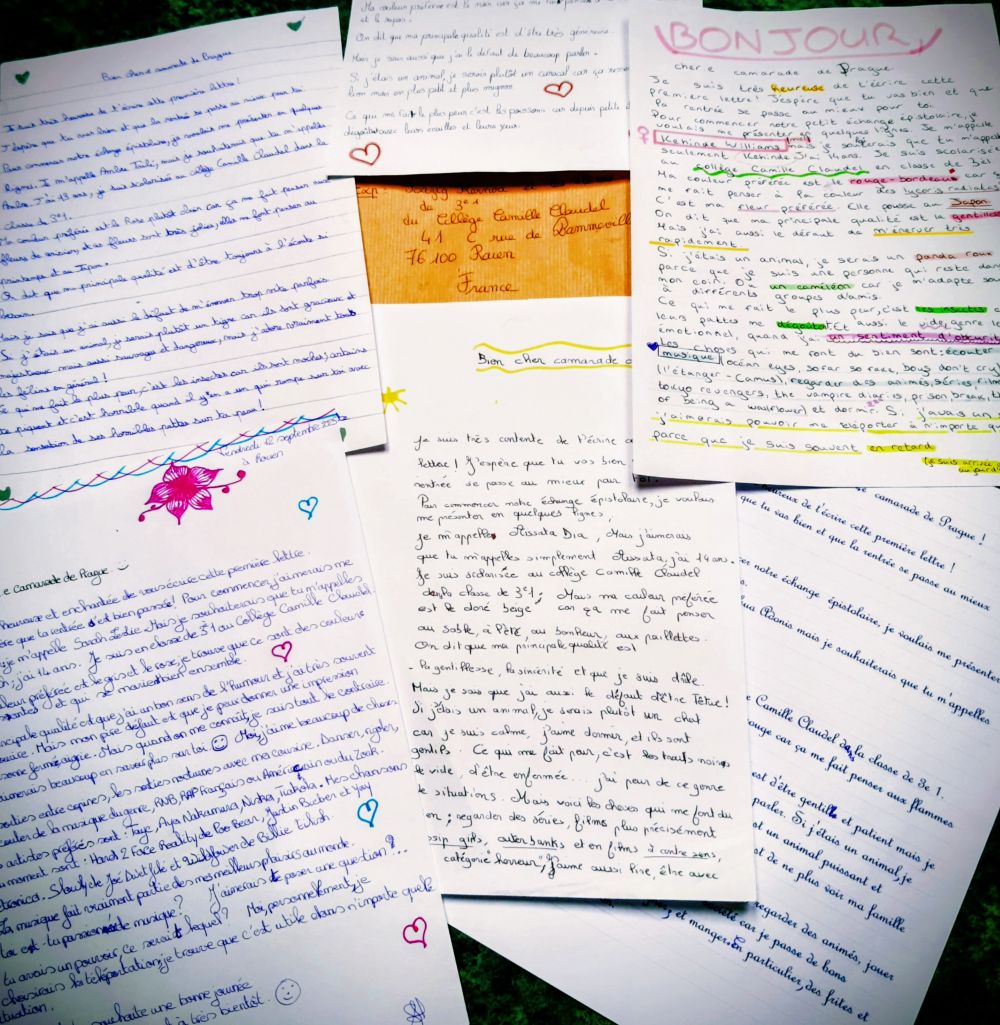 Bien cher·e camarade de Prague
Je suis très heureuse de t'écrire cette première lettre !
J'espère que tu vas bien et que la rentrée se passe au mieux pour toi.
Pour commencer notre échange épistolaire, je voulais me présenter en quelques
lignes. Je m'appelle Ambre mais je souhaiterais que tu m'appelles
Ambre. J'ai 13 ans, je suis scolarisée au collège Camille Claudel dans la
classe de 3e1.
Ma couleur préférée est le rose plutôt clair car ça me fait penser aux
fleurs de cerisier, et ces fleurs sont très jolies, elles me font penser au
printemps et au Japon.
On dit que ma principale qualité est d'être toujours à l'écoute si
besoin.
Mais je sais que j'ai aussi le défaut de m'énerver trop vite parfois.
Si j'étais un animal, je serais plutôt un tigre car ils sont gracieux et
majestueux mais aussi sauvages et dangereux, mais j'adore vraiment tous
les félins en général !
Ce qui me fait le plus peur, c'est les insectes car ils sont moches, certains
te piquent et c'est horrible quand il y en a un qui rampe sur toi avec
la sensation de ses horribles pattes sur ta peau !
Ma couleur préférée est le noir car ça me
et le Japon.
On dit que ma principale qualité est d'être très généreuse.
Mais je sais aussi que j'ai le défaut de beaucoup parler.
Si j'étais un animal, je serais plutôt un caracal car ça
lion mais en plus petit et plus mignon.
Ce qui me fait le plus peur c'est les poissons car depuis petite
leurs écailles et leurs yeux.
Exp :
du 3e1
du Collège Camille Claudel
41 C rue de Dammeville
76 100 Rouen
France
BONJOUR,
cher·e camarade de Prague.
Je suis très heureuse de t'écrire cette
première lettre! J'espère que tu vas bien et que
la rentrée se passe au mieux pour toi.
Pour commencer notre petit échange épistolaire, je
voulais me présenter en quelques lignes. Je m'appelle
Kehinde Williams mais je souhaiterais que tu m'appelles
seulement Kehinde. J'ai 14 ans. Je suis scolarisée
au collège Camille Claudel en classe de 3e1
Ma couleur préférée est le rouge-bordeaux car
me fait penser à la couleur des lycoris radiata
C'est ma fleur préférée. Elle pousse au Japon
On dit que ma principale qualité est la gentillesse
Mais j'ai aussi le défaut de m'énerver très
rapidement.
Si j'étais un animal, je serais un panda roux
parce que je suis une personne qui reste dans
mon coin. Ou un caméléon car je m'adapte
à différents groupes d'amis.
Ce qui me fait le plus peur, c'est les insectes
leurs pattes me dégoûtent. Et aussi le vide, genre le
émotionnel, quand j'ai un sentiment d'obscurité
Les choses qui me font du bien sont: écouter
musique (océan eyes, so far so fake, boys don't cry)
(l'étranger - Camus), regarder des animés, séries, films
tokyo revengers, the vampire diaries, prison break, t
of being a wallflower) et dormir. Si j'avais un
j'aimerais pouvoir me téléporter à n'importe
parce que je suis souvent en retard
(je suis arrivée
Bien cher camarade
Je suis très contente de t'écrire
lettre ! J'espère que tu vas bien
rentrée se passe au mieux pour toi.
Pour commencer notre échange épistolaire, je voulais
me présenter en quelques lignes,
je m'appelle Aissata Dia, Mais j'aimerais
que tu m'appelles simplement Aissata, j'ai 14 ans.
Je suis scolarisée au collège Camille Claudel
dans la classe de 3e1; Mais ma couleur préférée
est le doré beige car ça me fait penser
au sable, à l'été, au bonheur, aux paillettes.
On dit que ma principale qualité est
- la gentillesse, la sincérité et que je suis drôle.
Mais je sais que j'ai aussi le défaut d'être Têtue !
Si j'étais un animal, je serais plutôt un chat
car je suis calme, j'aime dormir, et ils sont
gentils. Ce qui me fait peur, c'est les trous noirs
le vide, d'être enfermée... j'ai peur de ce genre
de situations. Mais voici les choses qui me font du
bien ; regarder des séries, films plus précisément
gossip girls, outer banks et en films à contre sens,
catégorie "horreur", J'aime aussi lire, être avec
Vendredi 12 septembre
à Rouen
camarade de Prague
heureuse et enchantée de vous écrire cette première lettre.
que ta rentrée s'est bien passée ! Pour commencer j'aimerais me
je m'appelle Sarah. Mais je souhaiterais que tu m'appelles
j'ai 14 ans. Je suis en classe de 3e1 au Collège Camille Claudel.
couleur préférée est le gris et le rose, je trouve que ce sont des couleurs
et qui se marient bien ensemble.
principale qualité est que j'ai un bon sens de l'humour et j'ai très souvent
sourire. Mais mon pire défaut est que je peux donner une impression
aigre. Mais quand on me connaît, je suis tout le contraire.
J'aimerais beaucoup en savoir plus sur toi Moi, j'aime beaucoup de choses
sorties entre copines, les sorties nocturnes avec ma cousine. Danser, rigoler,
écouter de la musique du genre, RNB, RAP Français ou Américain ou du Zouk.
artistes préférés sont : Tayc, Aya Nakamura, Ninho, Tiakola. Mes chansons
du moment sont : Hard 2 Face Reality de Poo Bear, Justin Bieber et Jay
Electronica. Slowly de Joé Dwèt Filé et Wildflower de Billie Eilish.
La musique fait vraiment partie des mes meilleurs plaisirs au monde.
Toi es-tu passionné de musique ? J'aimerais te poser une question ...
Si tu avais un pouvoir, ce serait lequel ? Moi, personnellement, je
choisirais la téléportation, je trouve que c'est utile dans n'importe quelle
situation.
souhaite une bonne journée
à très bientôt.
camarade de Prague !
heureux de t'écrire cette première lettre !
que tu vas bien et que la rentrée se passe au mieux
notre échange épistolaire, je voulais me présenter
Adonis mais je souhaiterais que tu m'appelles
Camille Claudel dans la classe de 3e 1.
rouge car ça me fait penser aux flammes
est d'être gentille et patient mais je
parler. Si j'étais un animal, je
est un animal puissant et
est de ne plus voir ma famille
regarder des animés, jouer
car je passe de bons
et manger. En particulier, des frites et